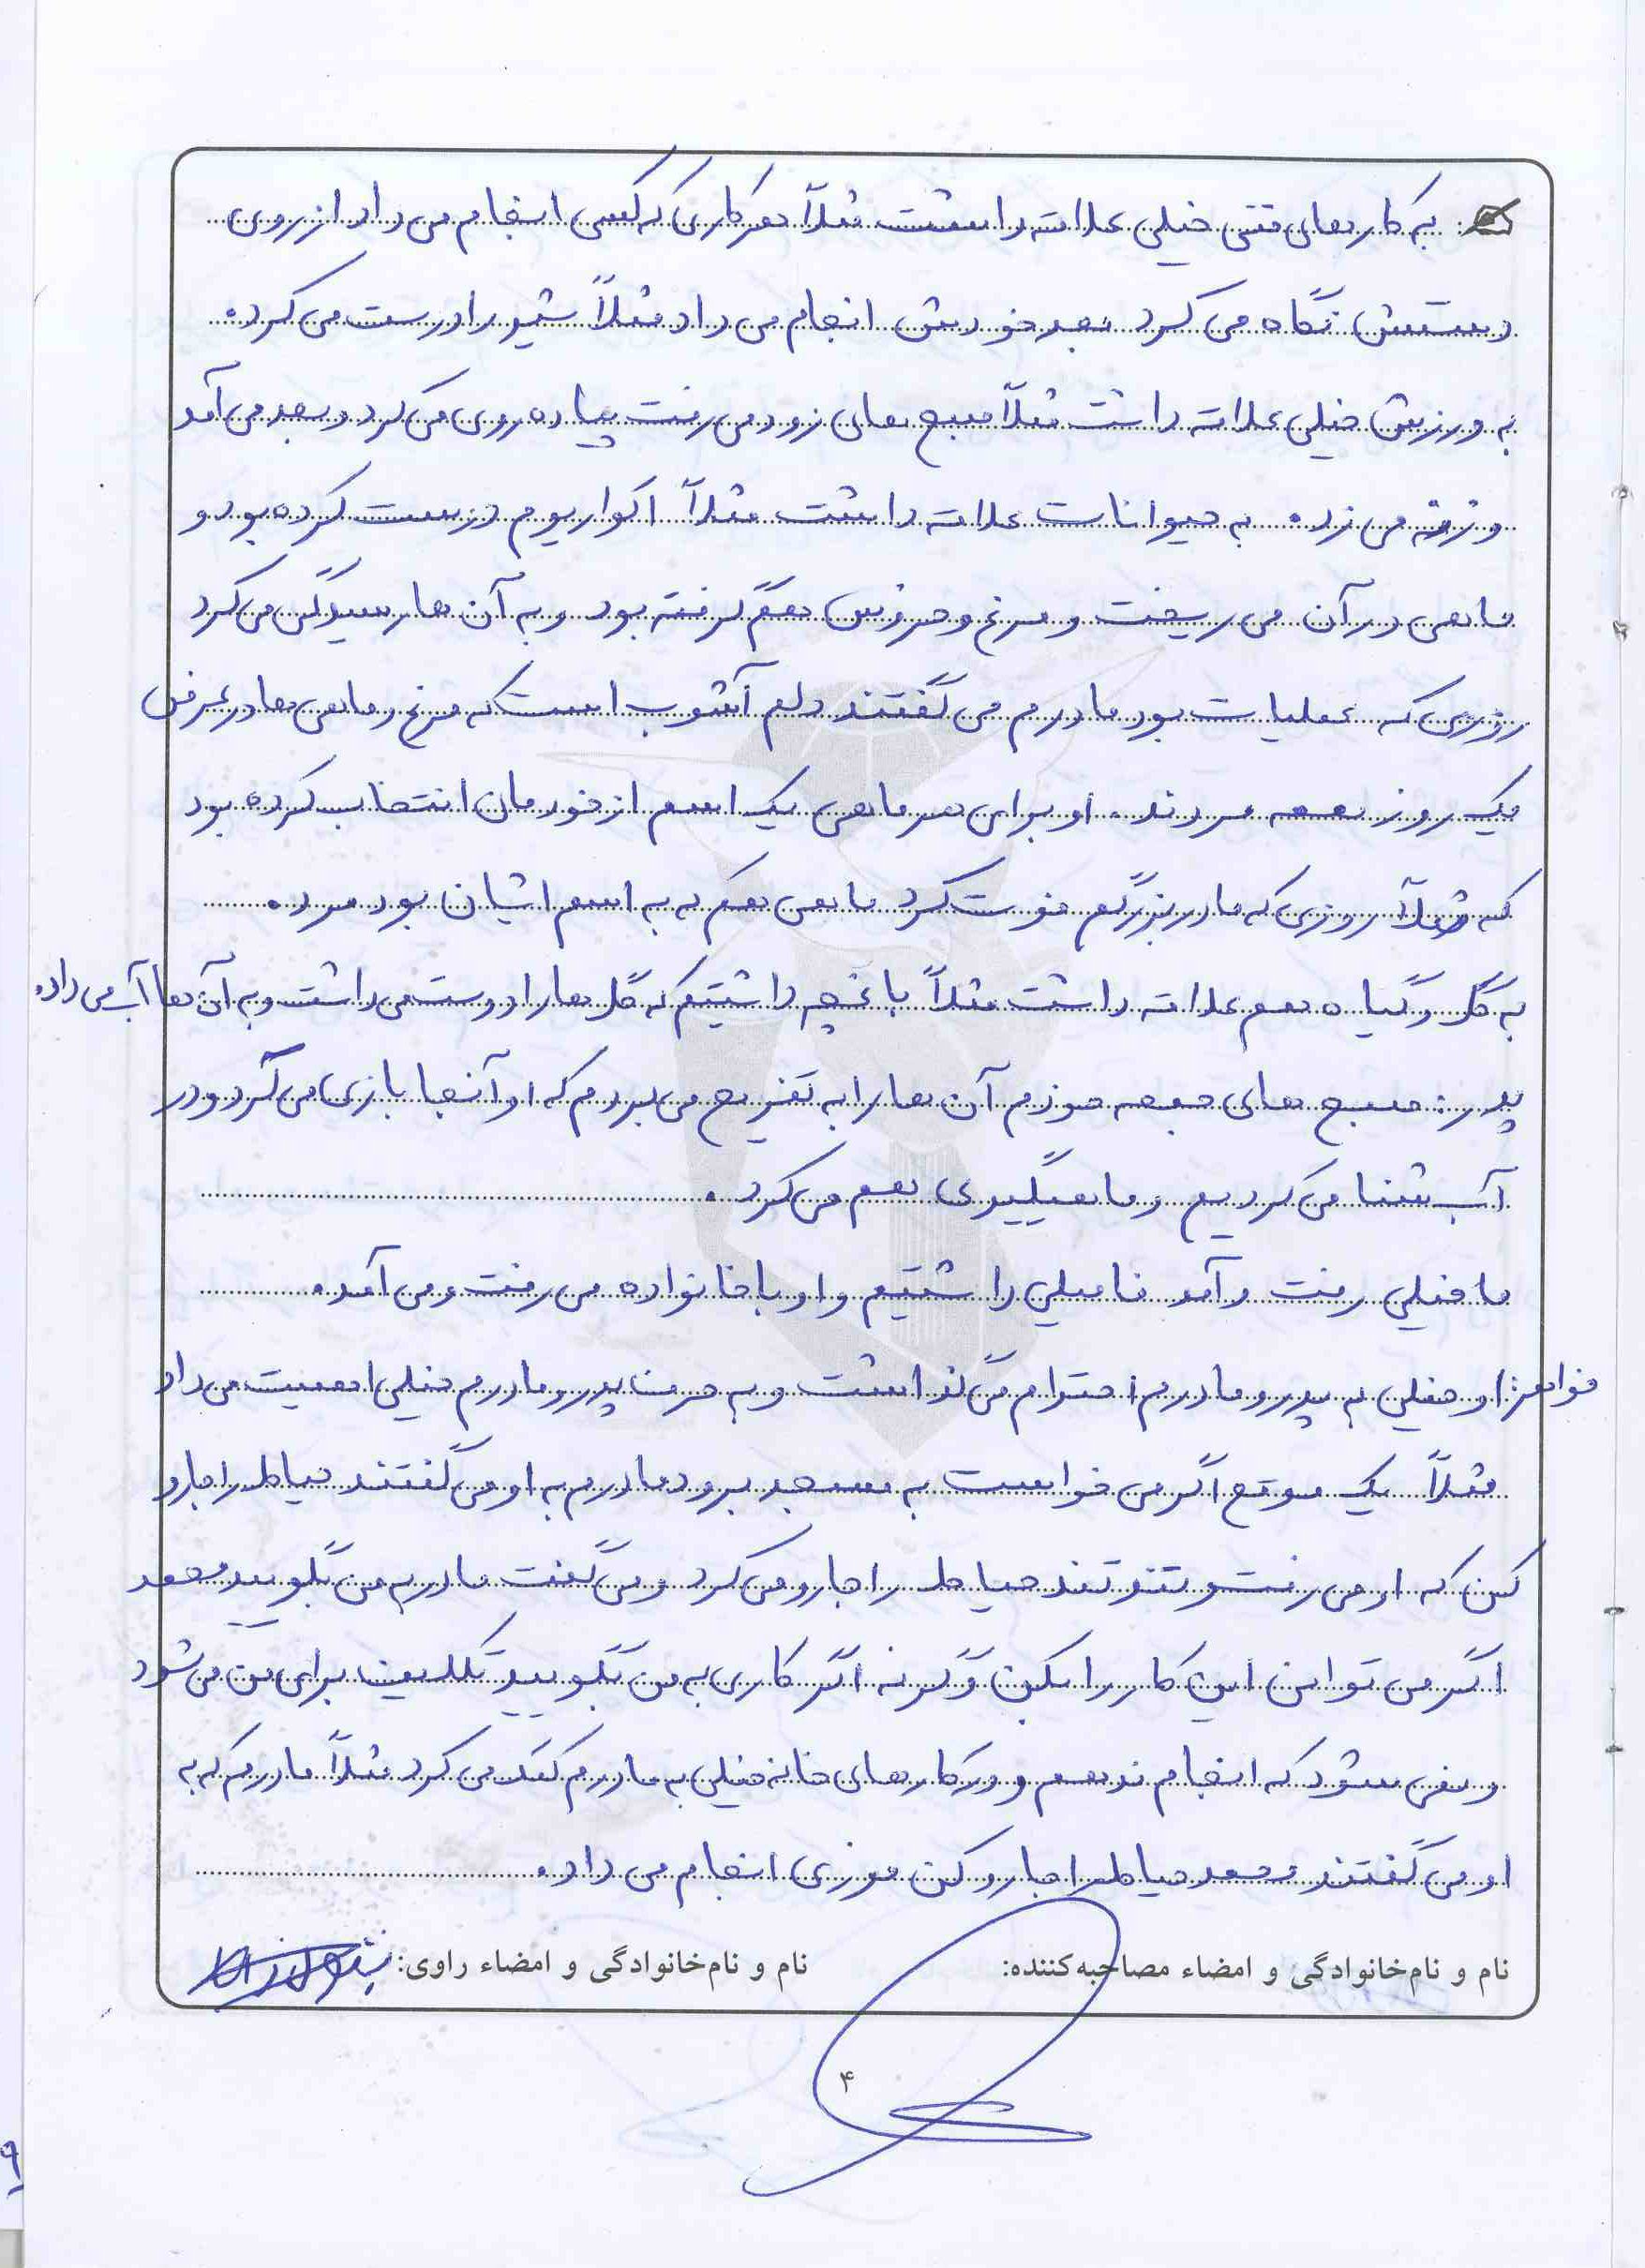 به کارهای فنی خیلی علاقه داشت مثلاً هر کاری که کسی انجام می داد از روی
دستش نگاه می کرد بعد خودش انجام می داد مثلاً شیر را درست می کرد.
به ورزش خیلی علاقه داشت مثلاً صبح های زود می رفت پیاده روی می کرد و بعد می آمد
وزنه می زد. به حیوانات علاقه داشت مثلاً اکواریوم درست کرده بود و
ماهی در آن می ریخت و مرغ و خروس هم گرفته بود و به آن ها رسیدگی می کرد
روزی که عملیات بود مادرم می گفتند دلم آشوب است که مرغ و ماهی ها در عرض
یک روز همه مردند. او برای هر ماهی یک اسم از خودمان انتخاب کرده بود
که مثلاً روزی که مادربزرگم فوت کرد ماهی هم که به اسم ایشان بود مرد.
به گل و گیاه هم علاقه داشت مثلاً باغچه داشتیم که گل ها را دوست می داشت و به آن ها آب می داد.
پدر: صبح های جمعه خودم آن ها را به تفریح می بردم که او آنجا بازی می کرد و در
آب شنا می کردیم و ماهیگیری هم می کرد.
ما خیلی رفت و آمد فامیلی داشتیم و او با خانواده می رفت و می آمد.
خواهر: او خیلی به پدر و مادرم احترام می گذاشت و به حرف پدر و مادرم خیلی اهمیت می داد
مثلاً یک موقع اگر می خواست به مسجد برود مادرم به او می گفتند حیاط را جارو
کن که او می رفت و تند تند حیاط را جارو می کرد و می گفت مادر به من بگویید محمد
اگر می توانی این کار را بکن وگرنه اگر کاری به من بگویید تکلیف برای من می شود
و نمی شود که انجام ندهم و در کارهای خانه خیلی به مادرم کمک می کرد مثلاً مادرم که به
او می گفتند محمد حیاط را جارو کن فوری انجام می داد.
نام و نام‌خانوادگی و امضاء مصاحبه‌کننده:
نام و نام‌خانوادگی و امضاء راوی:
۴